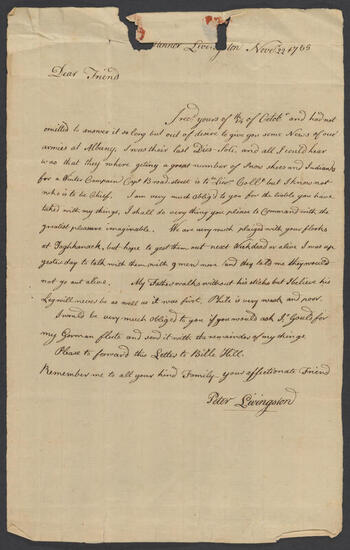 Mannor Livingston Nove. 22 1755
Dear Friend
I recd. yours of of Octobr and had not
omitted to answer it so long but out of desire to give you some News of our
armies at Albany. I was there last and all I could hear
was that they where geting a great number of Snow shoes and Indians
for a Winter Campain Capt Broadstreet is to Collo. but I know not
who is to be Chief. I am very much Oblig'd to you for the trouble you have
taked with my things, I shall do very thing you please to Command with the
greatest pleasure imaginable. We are very much plaiged with your flocks
at Taghkanack, but hope to gett them out next Week dead or alive I was up
yesterday to talk with them with 9 men more and they told me they would
not go out alive. My Father walks without his sticks but I believe his
Leg will never be as well as it was first. Phile is very weak and poor.
I would be very much obliged to you if you would ask Js. Goulds for
my German flute and send it with the remainder of my things
Please to forward this Letter to Bille Hill.
Remember me to all your kind Family your affectionate Friend
Peter Livingston